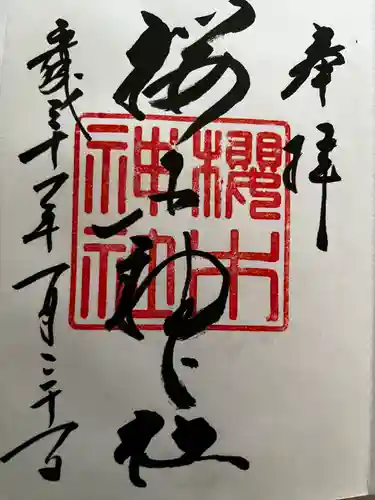 奉拝
櫻木神社
櫻木
神社
平成三十一年一月二十一日